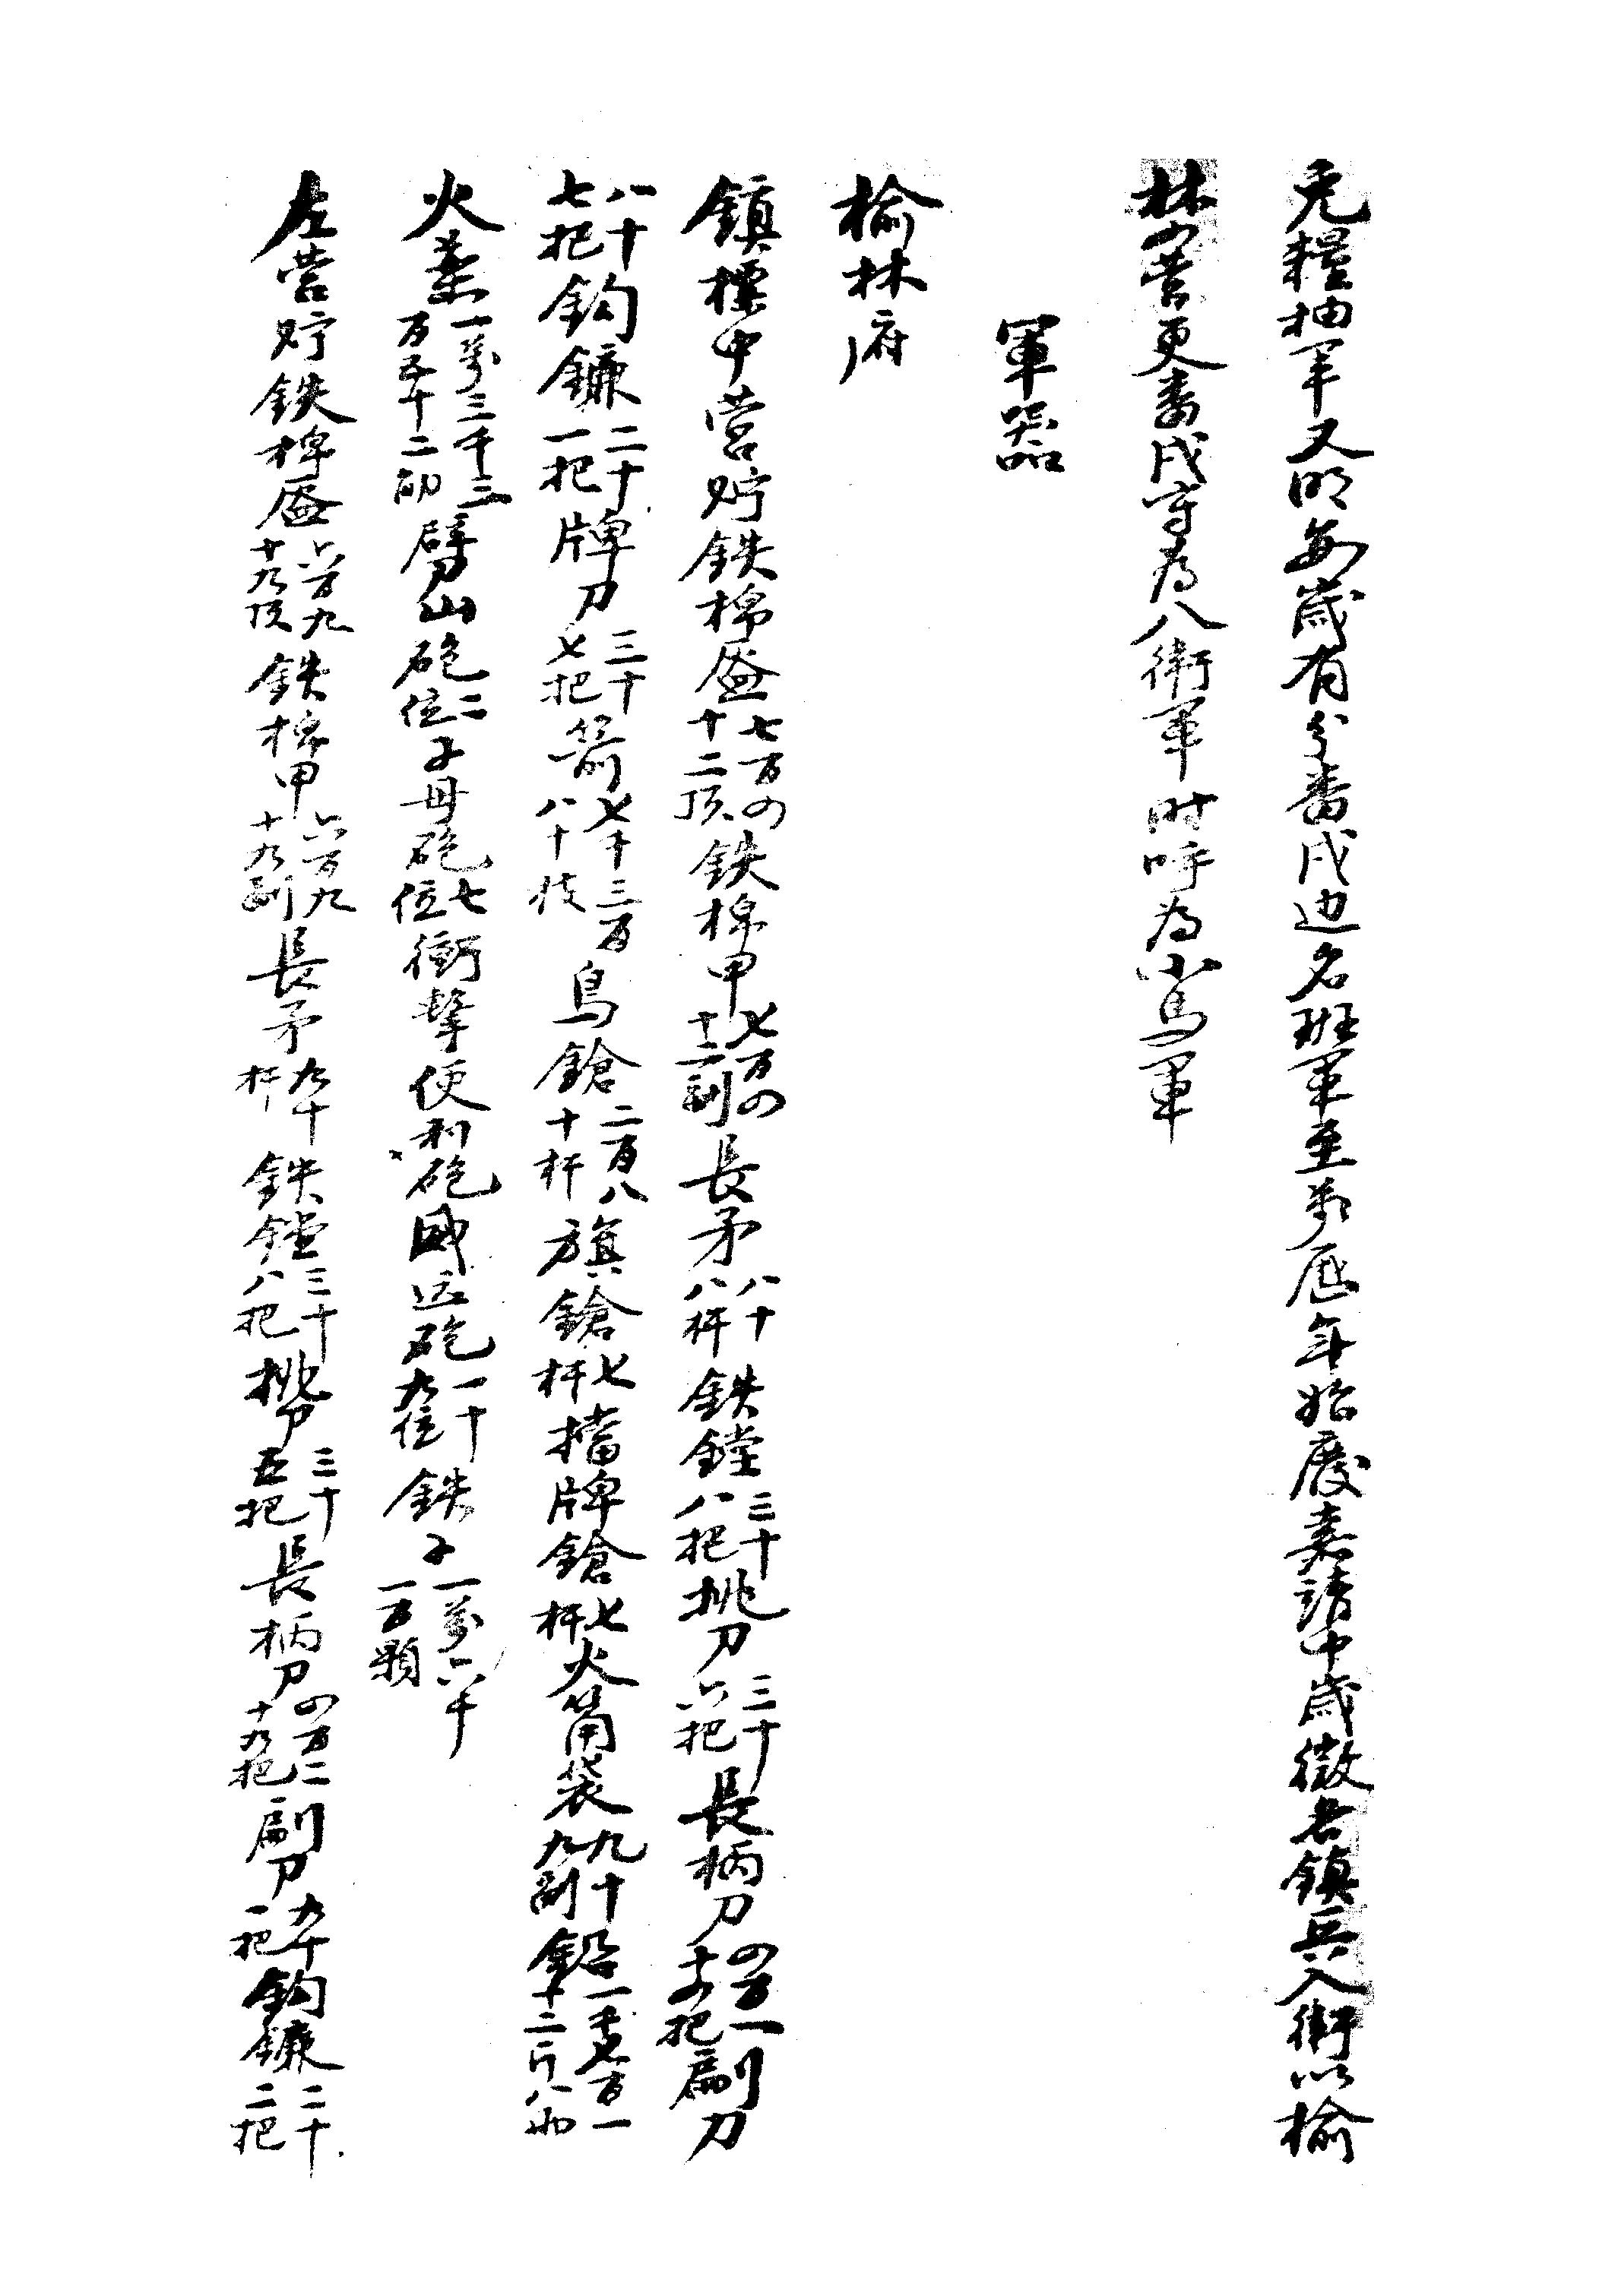 免糧抽軍又明每歲有分番戍边名班軍至萬厯年始廢嘉請中歲徵各鎮兵入衛以榆
林四营更畨戍守為八衛軍时呼為小馬軍
軍器
榆林府
鎮標中营貯鉄棉盔七百四十二頂鉄棉甲七百四十二副長矛八十八杆鉄鏜三十八把挑刀三十六把長柄刀四百一十五把扁刂刀
八十七把鈎鐮二十一把牌刀三十七把箭七千三百八十枝鳥鎗二百八十杆旗鎗七杆擋牌鎗七杆火筒袋九十九副鉛一千七百一十二斤八两
火藥一萬三千三百五十二觔劈山砲二位子母砲七位衝擊便利砲威远砲一十九位鉄子一萬六千一百顆
左营貯鉄棉盔六百九十九頂鉄棉甲六百九十九副長矛九十杆鉄鏜三十八把挑刀三十五把長柄刀四百二十九把扁刂刀九十一把鈎鐮二十二把